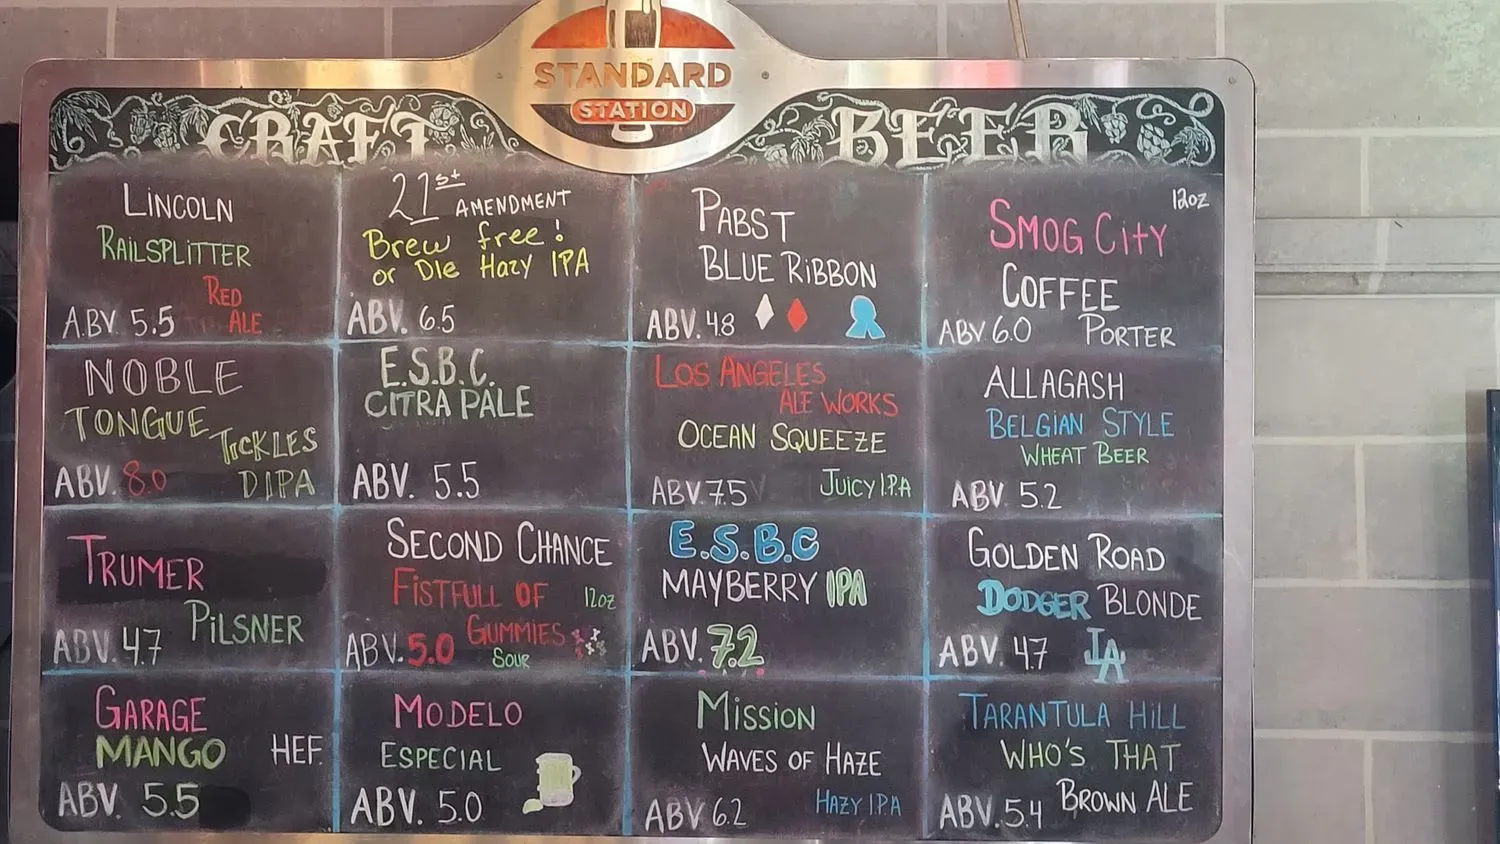 STANDARD
STATION
CRAFT BEER
LINCOLN
RAILSPLITTER
RED
ALE
A.BV. 5.5
21st AMENDMENT
Brew free!
or Die Hazy IPA
ABV. 6.5
PABST
BLUE RIBBON
ABV. 4.8
12oz
SMOG CITY
COFFEE
ABV 6.0 PORTER
NOBLE
TONGUE
TICKLES
ABV. 8.0 DIPA
E.S.B.C.
CITRA PALE
ABV. 5.5
LOS ANGELES
ALE WORKS
OCEAN SQUEEZE
ABV. 7.5 JUICY I.P.A
ALLAGASH
BELGIAN STYLE
WHEAT BEER
ABV. 5.2
TRUMER
PILSNER
ABV. 4.7
SECOND CHANCE
FISTFULL OF 12oz
GUMMIES
ABV. 5.0 SOUR
E.S.B.C
MAYBERRY IPA
ABV. 7.2
GOLDEN ROAD
DODGER BLONDE
ABV. 4.7 LA
GARAGE
MANGO HEF.
ABV. 5.5
MODELO
ESPECIAL
ABV. 5.0
MISSION
WAVES OF HAZE
ABV. 6.2 HAZY I.P.A
TARANTULA HILL
WHO'S THAT
BROWN ALE
ABV. 5.4